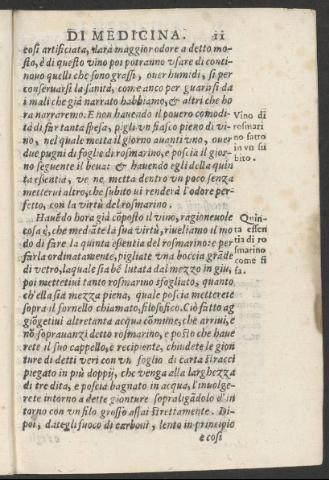 DI MEDICINA. 11
cosi artificiata, darà maggior odore a detto mo-
sto, è di questo vino poi potranno usare di conti-
nouo quelli che sono grassi, ouer humidi, sì per
conseruarsi la sanità, come anco per guarirsi da
i mali che già narrato habbiamo, & altri che ho
ra narraremo. E non hauendo il pouero comodi-
tà di far tanta spesa, pigli vn fiasco pieno di vi-
no, nel quale metta il giorno auanti vno, ouer
due pugni di foglie di rosmarino, e poscia il gior-
no seguente il beua: & hauendo egli della quin
ta essentia, ve ne metta dentro vn poco senza
metterui altro; che subito ui renderà l'odore per-
fetto, con la virtù del rosmarino.
Vino di
rosmari
no fatto
in vn su
bito.
Hauẽdo hora già cõposto il vino, ragioneuole
cosa è, che mediãte la sua virtù, riueliamo il mo
do di fare la quinta essentia del rosmarino: e per
farla ordinatamente, pigliate vna boccia grãde
di vetro, laquale sia bẽ lutata dal mezzo in giu,
poi mettetiui tanto rosmarino sfogliato, quanto
ch'ella sià mezza piena, quale poscia metterete
sopra il fornello chiamato, filosofico. Ciò fatto ag
giõgetiui altretanta acqua cõmune, chè arriui, e
nõ soprauanzi detto rosmarino, e posto che haue
rete il suo cappello, è recipiente, chiudete le gion
ture di detti veri con vn foglio di carta stracci
piegato in più doppij, che venga alla larghezza
di tre dita, e poscia bagnato in acqua, l'inuolge-
rete intorno a dette gionture sopraligãdolo d'in
torno con vn filo grosso assai strettamente. Di-
poi, dategli fuoco di carboni, lento in principio
e cosi
Quin-
ta essen
tia di ro
smarino
come si
fa.